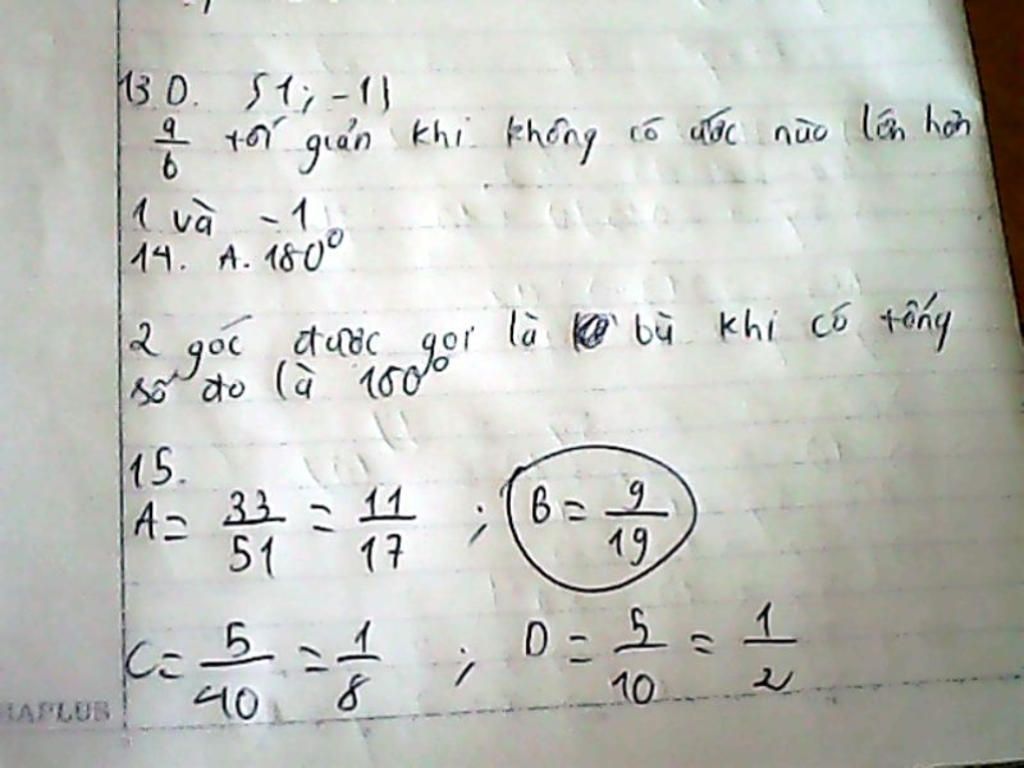 13 D. {1; -1}
a/b tối giản khi không có ước nào lớn hơn
1 và -1
14. A. 180⁰
2 góc được gọi là bù khi có tổng
số đo là 180⁰
15.
A = 33/51 = 11/17 ; B = 9/19
C = 5/40 = 1/8 ; D = 5/10 = 1/2